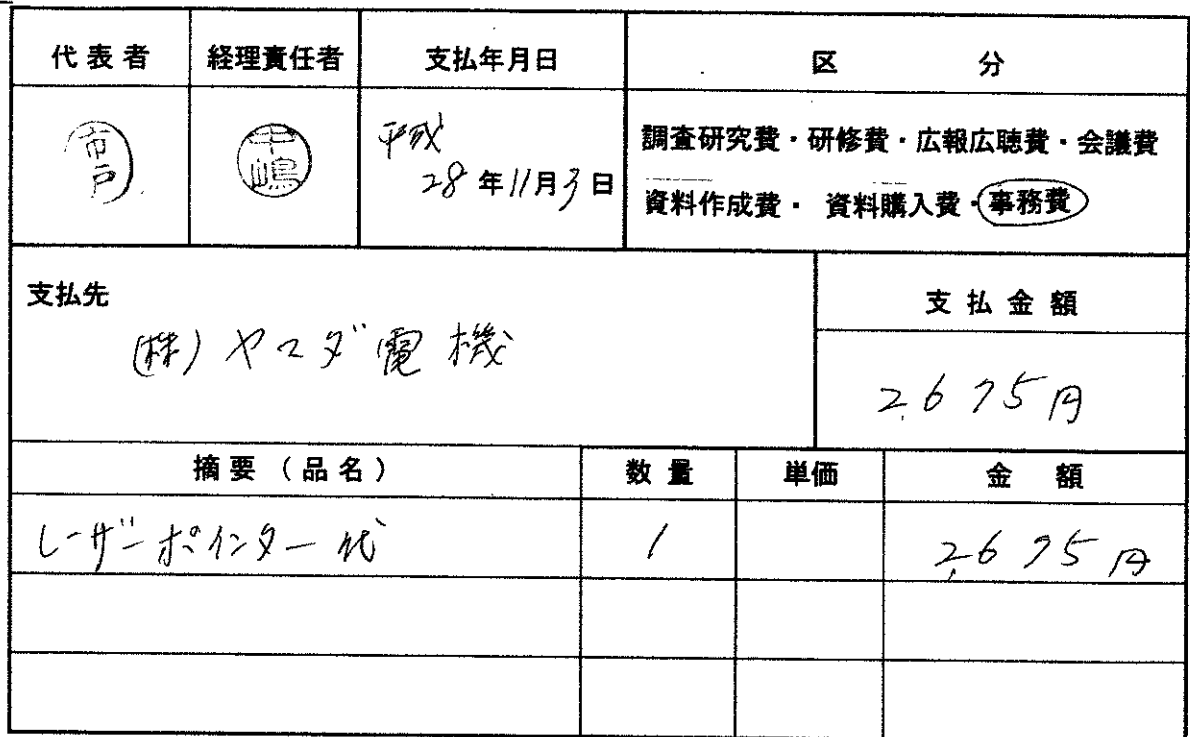 代表者 経理責任者 支払年月日 区 分
市戸 中嶋 平成
28年11月3日
調査研究費・研修費・広報広聴費・会議費
資料作成費・ 資料購入費・事務費
支払先 支払金額
(株)ヤマダ電機
2,675円
摘要(品名) 数量 単価 金 額
レーザーポインター代 1 2,675円